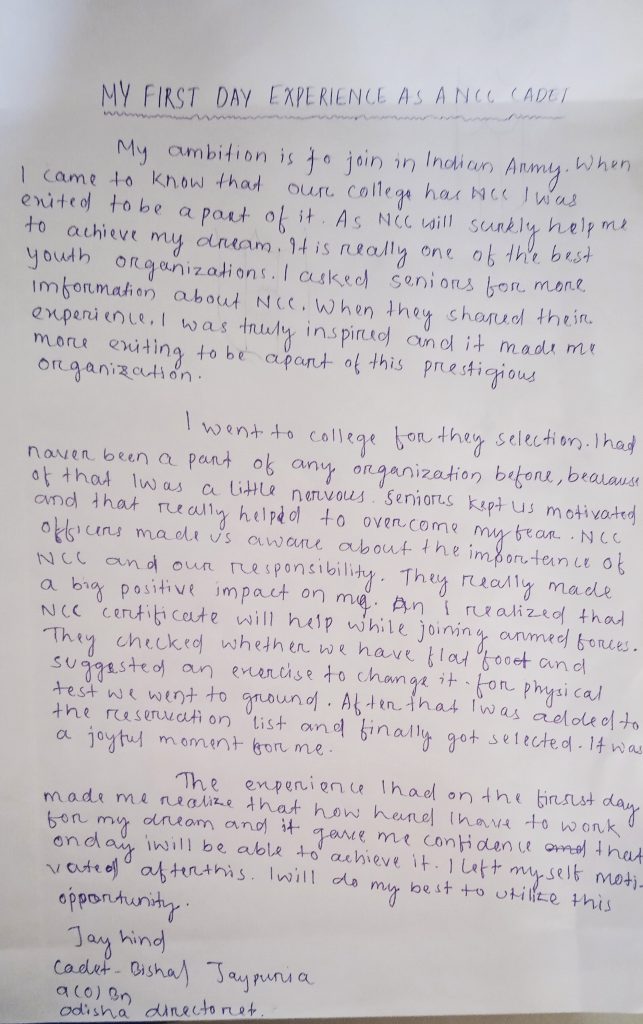 MY FIRST DAY EXPERIENCE AS A NCC CADET
My ambition is to join in Indian Army. When
I came to know that our college has NCC I was
exited to be a part of it. As NCC will surely help me
to achieve my dream. It is really one of the best
youth organizations. I asked seniors for more
imformation about NCC. When they shared their
experience, I was truly inspired and it made me
more exiting to be apart of this prestigious
organization.
I went to college for they selection. I had
naver been a part of any organization before, bearause
of that I was a little nervous. Seniors kept us motivated
and that really helpdd to overcome my fear. NCC
officers made us aware about the importance of
NCC and our responsibility. They really made
a big positive impact on me. An I realized that
NCC certificate will help while joining armed forces.
They checked whether we have flat foot and
suggested an exercise to change it. for physical
test we went to ground. After that I was added to
the reservation list and finally got selected. It was
a joyful moment for me.
The experience I had on the firrst day
made me realize that how hard I have to work
for my dream and it gave me confidence and that
onday i will be able to achieve it. I left my self moti-
vated after this. I will do my best to utilize this
opportunity.
Jay hind
Cadet - Bishal Jaypuria
9(O) Bn
odisha directoret.